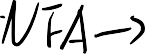 NFA→